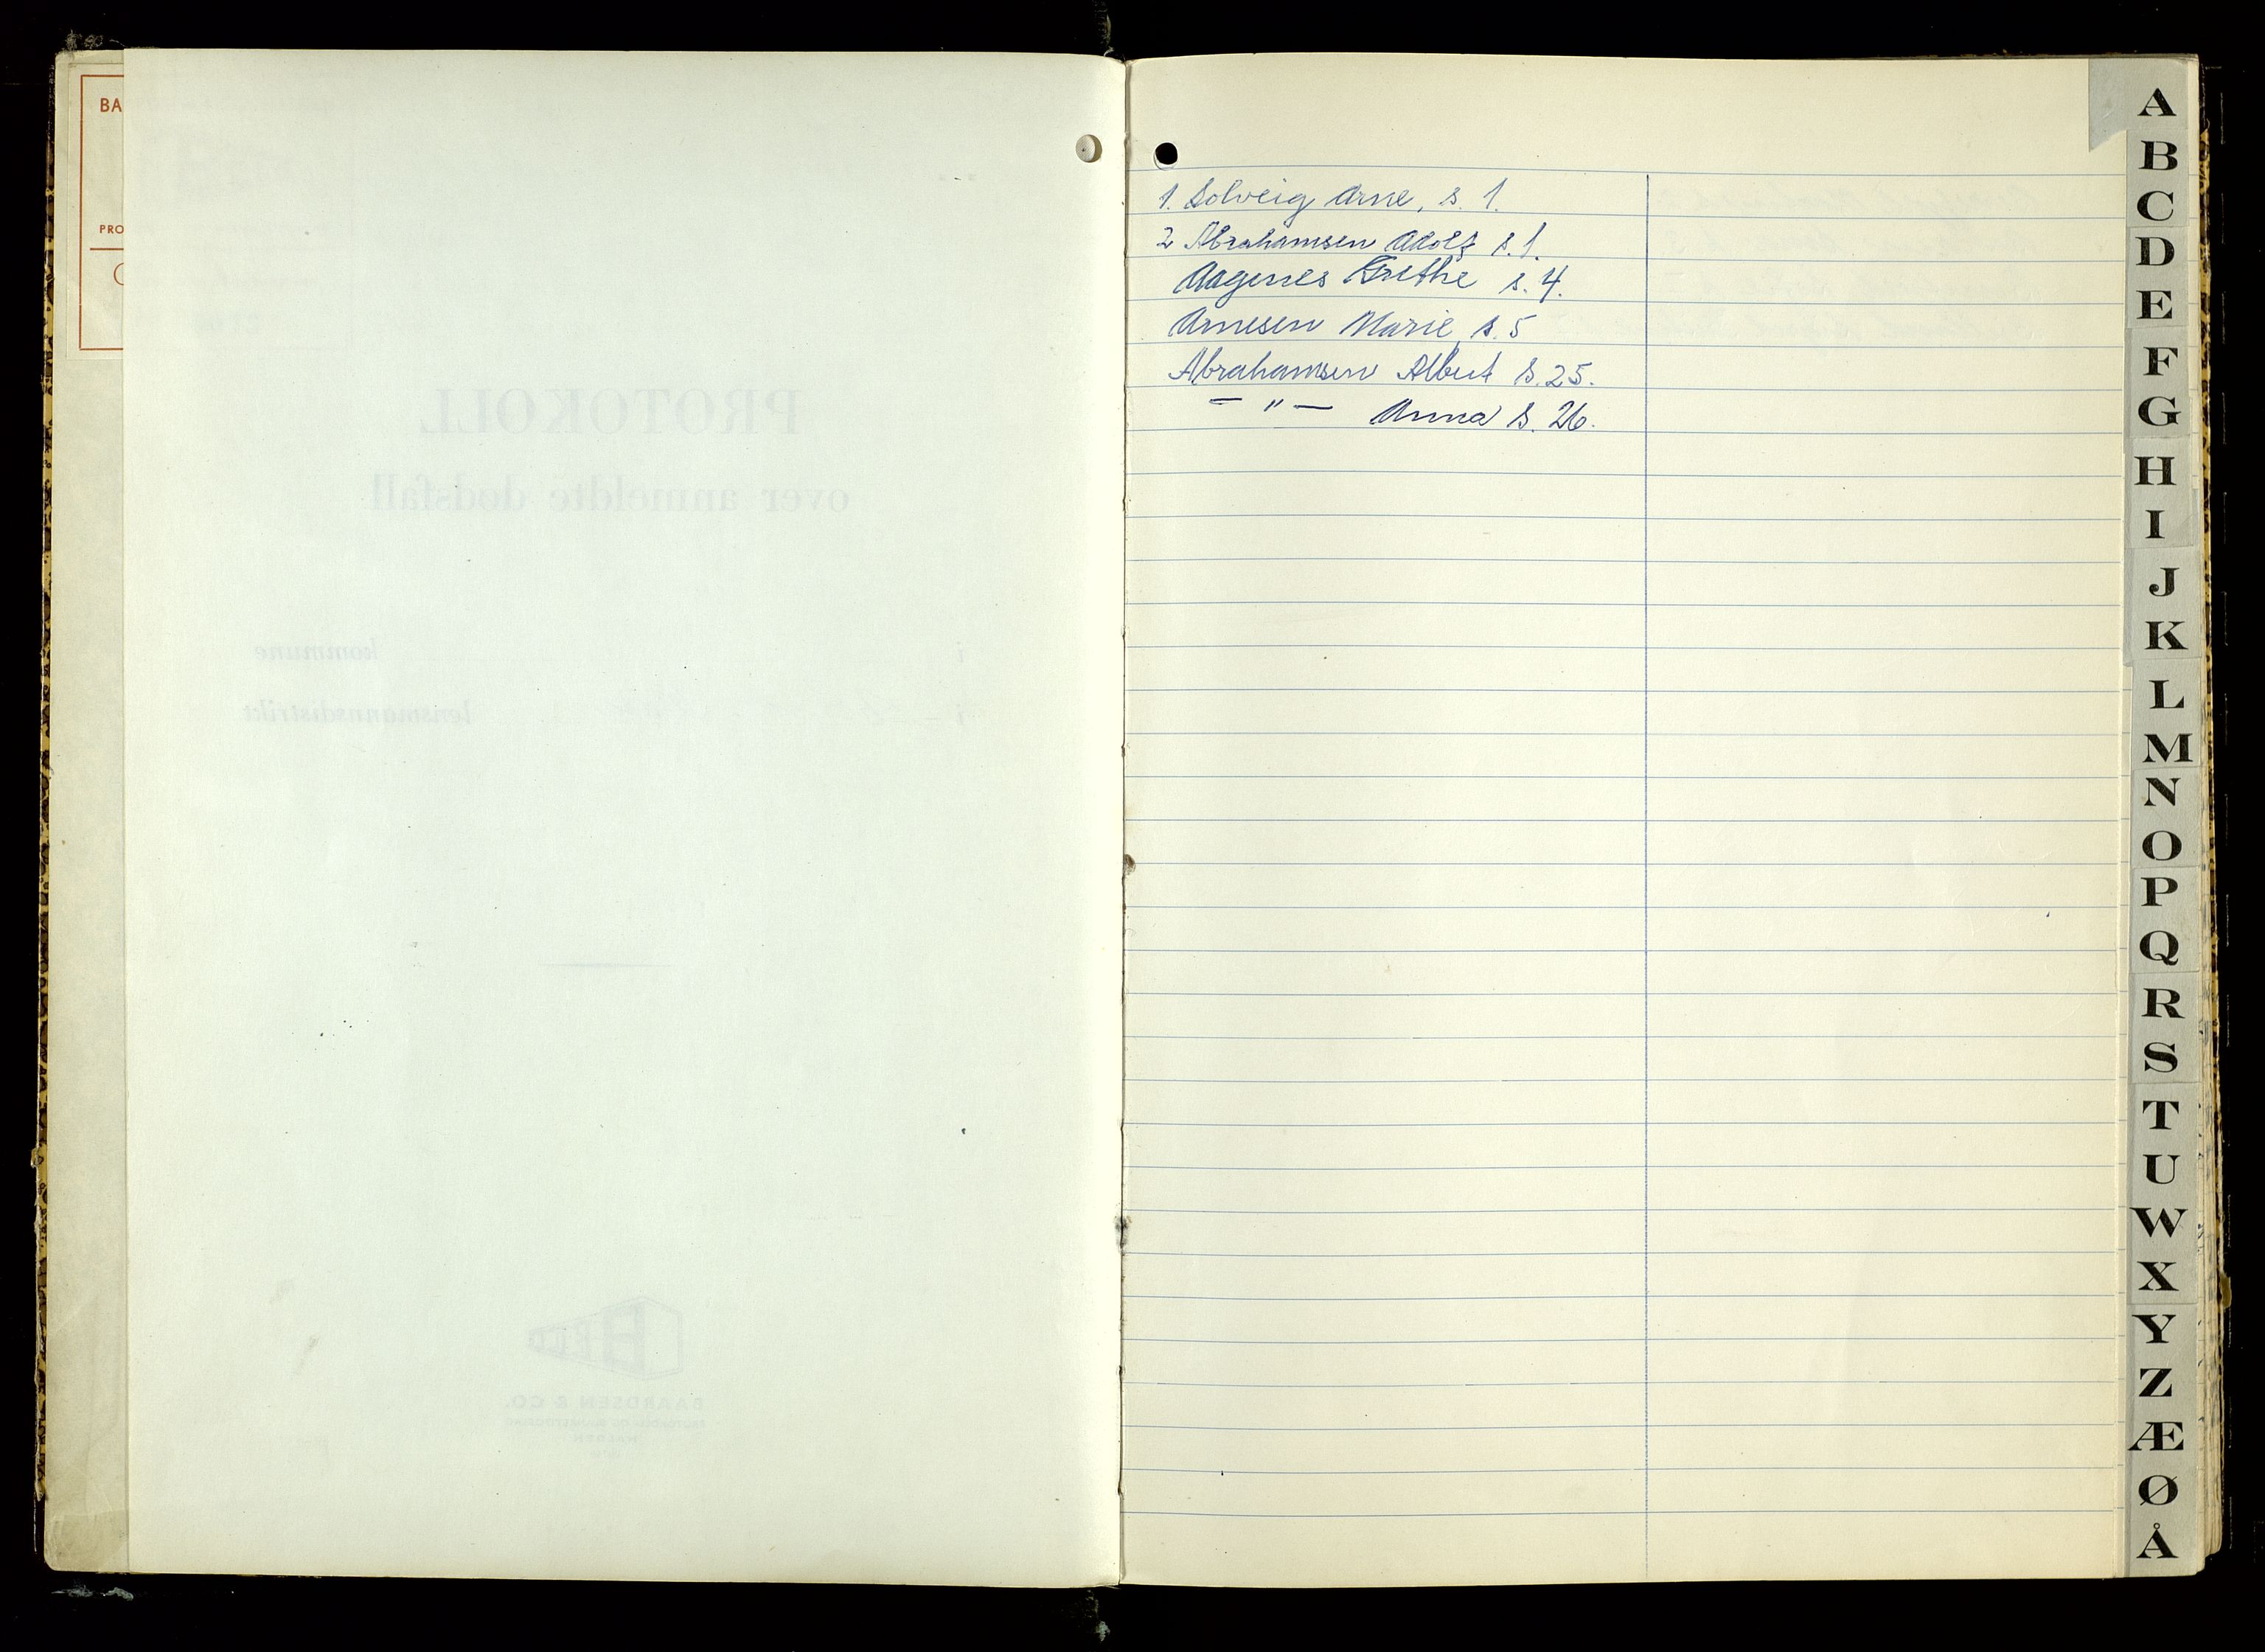 BA
PRO
PROTOKOLL
over anmeldte dødsfall
i kommune
i lensmannsdistrikt
BAARDSEN & CO.
HALDEN
1. Solveig Arne, s. 1.
2 Abrahamsen Adolf s. 1.
Aagenes Grethe s. 4.
Arnesen Marie s. 5
Abrahamsen Albert s. 25.
— " — Anna s. 26.
A
B
C
D
E
F
G
H
I
J
K
L
M
N
O
P
Q
R
S
T
U
W
X
Y
Z
Æ
Ø
Å